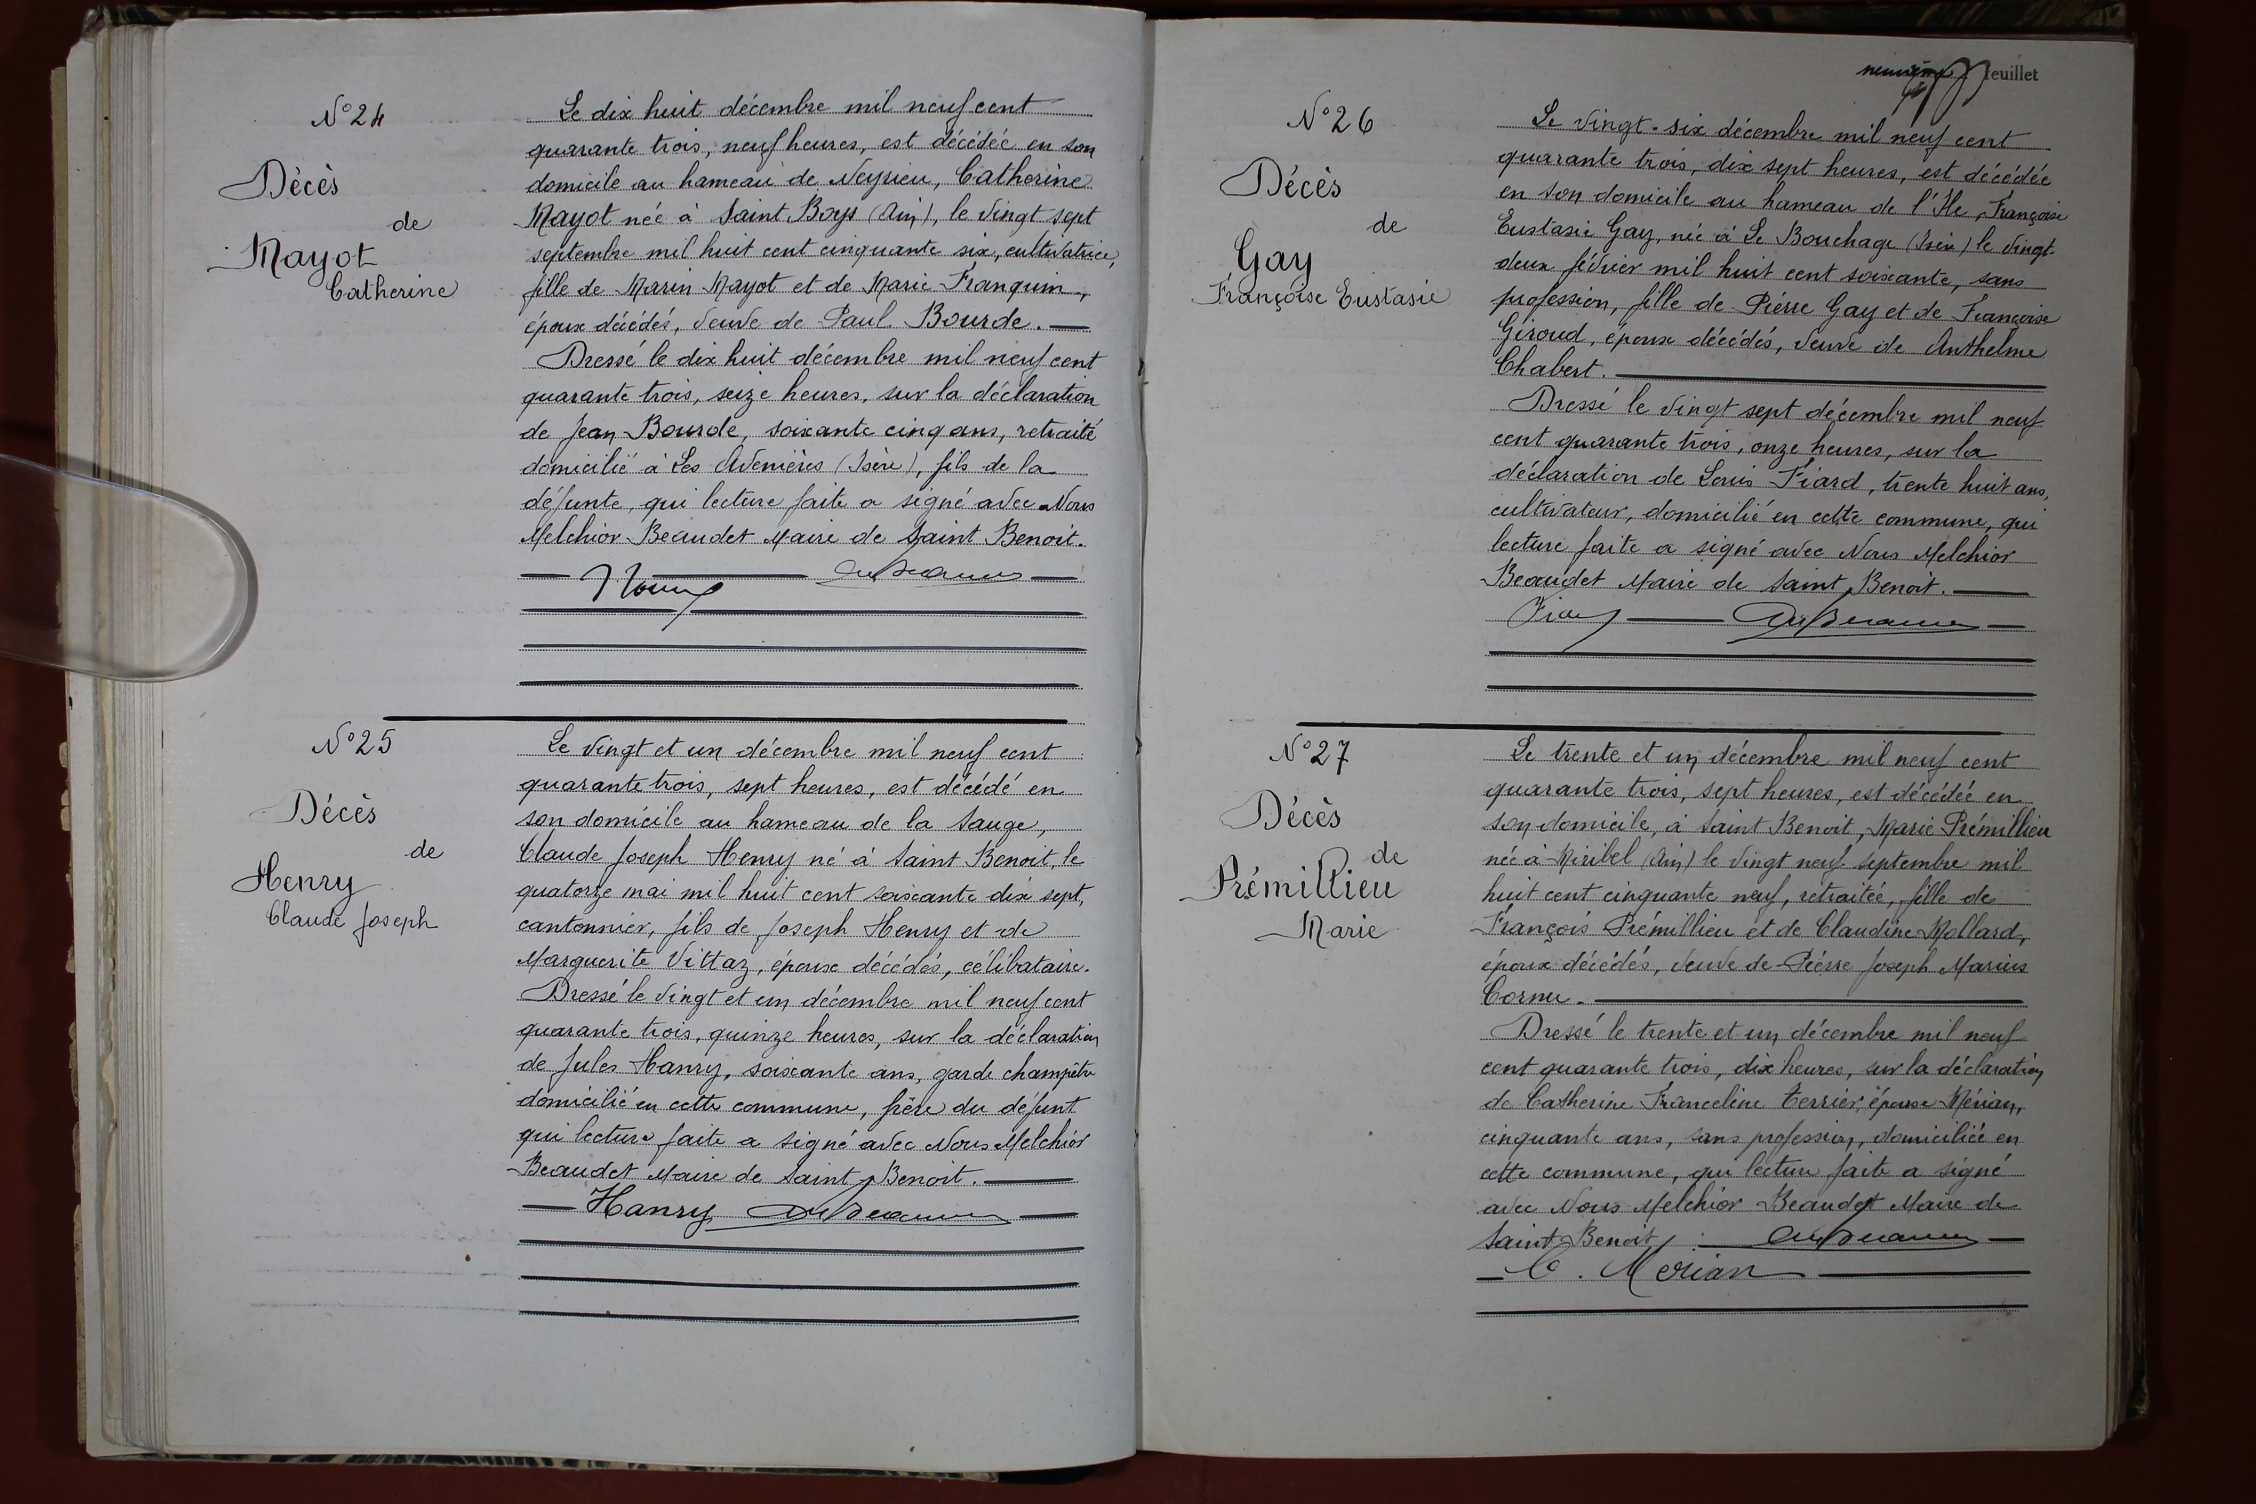 N° 24
Décès
de
Mayot
Catherine
Le dix huit décembre mil neuf cent
quarante trois, neuf heures, est décédée en son
domicile au hameau de Neyrieu, Catherine
Mayot née à Saint Boys (Ain), le vingt sept
septembre mil huit cent cinquante six, cultivatrice,
fille de Marin Mayot et de Marie Franquin,
époux décédés, veuve de Paul Bourde.
Dressé le dix huit décembre mil neuf cent
quarante trois, seize heures, sur la déclaration
de Jean Bourde, soixante cinq ans, retraité
domicilié à Les Avenières (Isère), fils de la
défunte, qui lecture faite a signé avec Nous
Melchior Beaudet Maire de Saint Benoit.
N° 25
Décès
de
Henry
Claude Joseph
Le vingt et un décembre mil neuf cent
quarante trois, sept heures, est décédé en
son domicile au hameau de la Sauge,
Claude Joseph Henry né à Saint Benoit, le
quatorze mai mil huit cent soixante dix sept,
cantonnier, fils de Joseph Henry et de
Marguerite Vittaz, époux décédés, célibataire.
Dressé le vingt et un décembre mil neuf cent
quarante trois, quinze heures, sur la déclaration
de Jules Hanry, soixante ans, garde champêtre
domicilié en cette commune, frère du défunt
qui lecture faite a signé avec Nous Melchior
Beaudet Maire de Saint Benoit.
Hanry
neuvième feuillet
N° 26
Décès
de
Gay
Françoise Eustasie
Le vingt-six décembre mil neuf cent
quarante trois, dix sept heures, est décédée
en son domicile au hameau de l'Ile, Françoise
Eustasie Gay, née à Le Bouchage (Isère) le vingt-
deux février mil huit cent soixante, sans
profession, fille de Pierre Gay et de Françoise
Giroud, époux décédés, veuve de Anthelme
Chabert.
Dressé le vingt sept décembre mil neuf
cent quarante trois, onze heures, sur la
déclaration de Louis Fiard, trente huit ans,
cultivateur, domicilié en cette commune, qui
lecture faite a signé avec Nous Melchior
Beaudet Maire de Saint Benoit.
N° 27
Décès
de
Prémillieu
Marie
Le trente et un décembre mil neuf cent
quarante trois, sept heures, est décédée en
son domicile, à Saint Benoit, Marie Prémillieu
née à Miribel (Ain) le vingt neuf septembre mil
huit cent cinquante neuf, retraitée, fille de
François Prémillieu et de Claudine Mollard,
époux décédés, veuve de Pierre Joseph Marius
Cornu.
Dressé le trente et un décembre mil neuf
cent quarante trois, dix heures, sur la déclaration
de Catherine Franceline Terrier, épouse Mérian,
cinquante ans, sans profession, domiciliée en
cette commune, qui lecture faite a signé
avec Nous Melchior Beaudet Maire de
Saint Benoit.
C. Merian